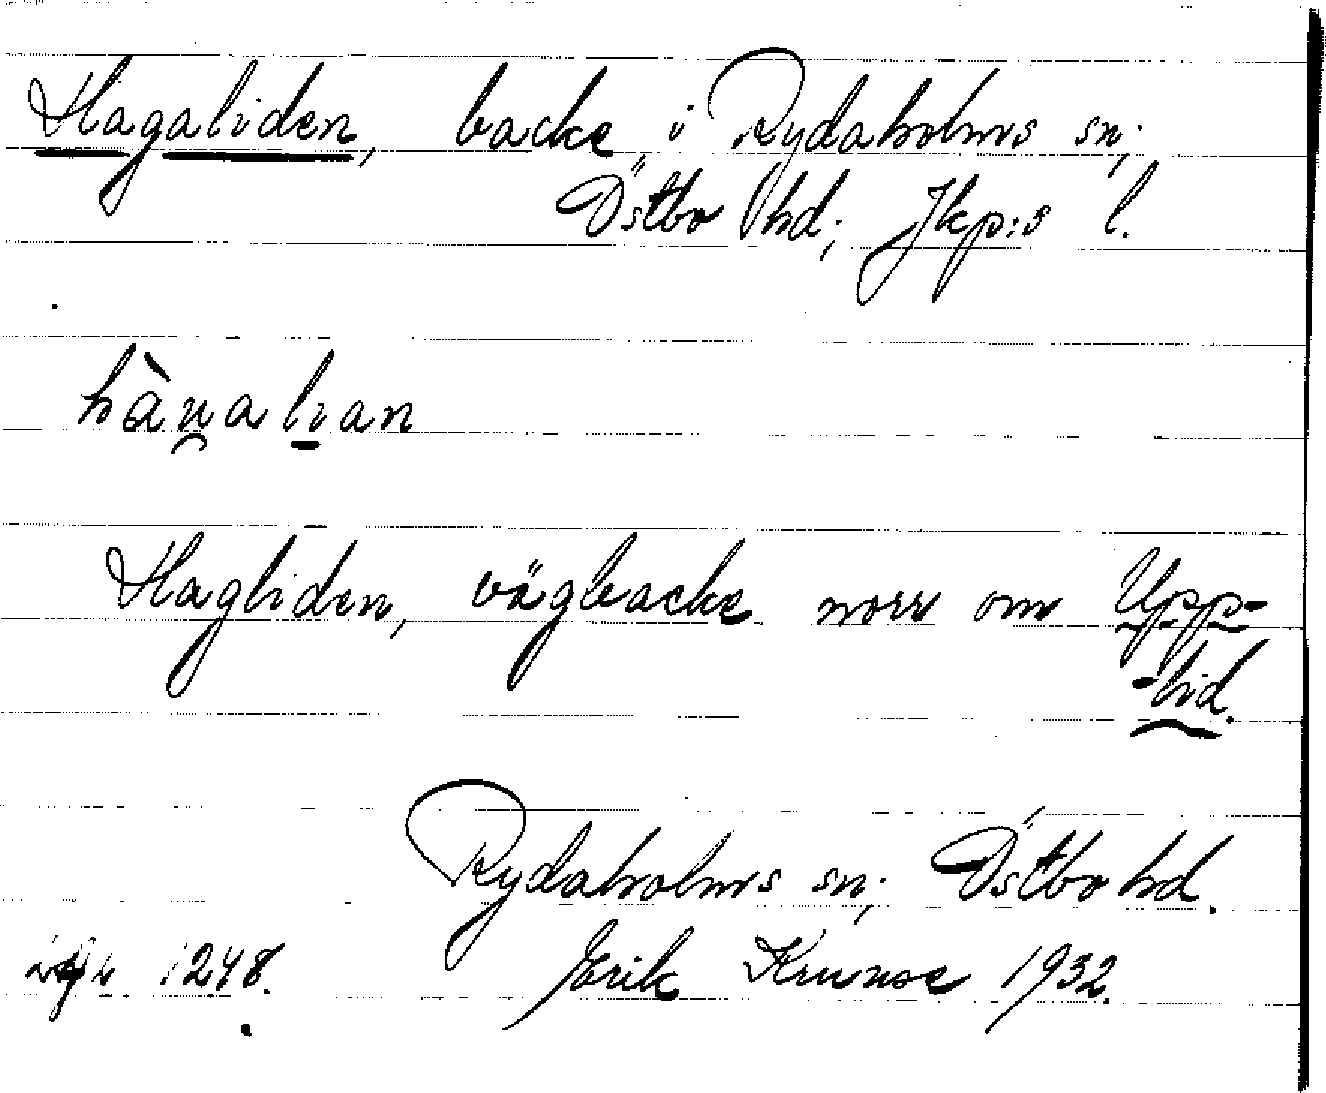 Hagaliden, backe i Rydaholms sn;
Östbo hd; Jkp:s l.
hàu̯alian
Hagliden, vägbacke norr om Upp-
-lid.
Rydaholms sn; Östbo hd.
1248. Erik Krunse 1932.